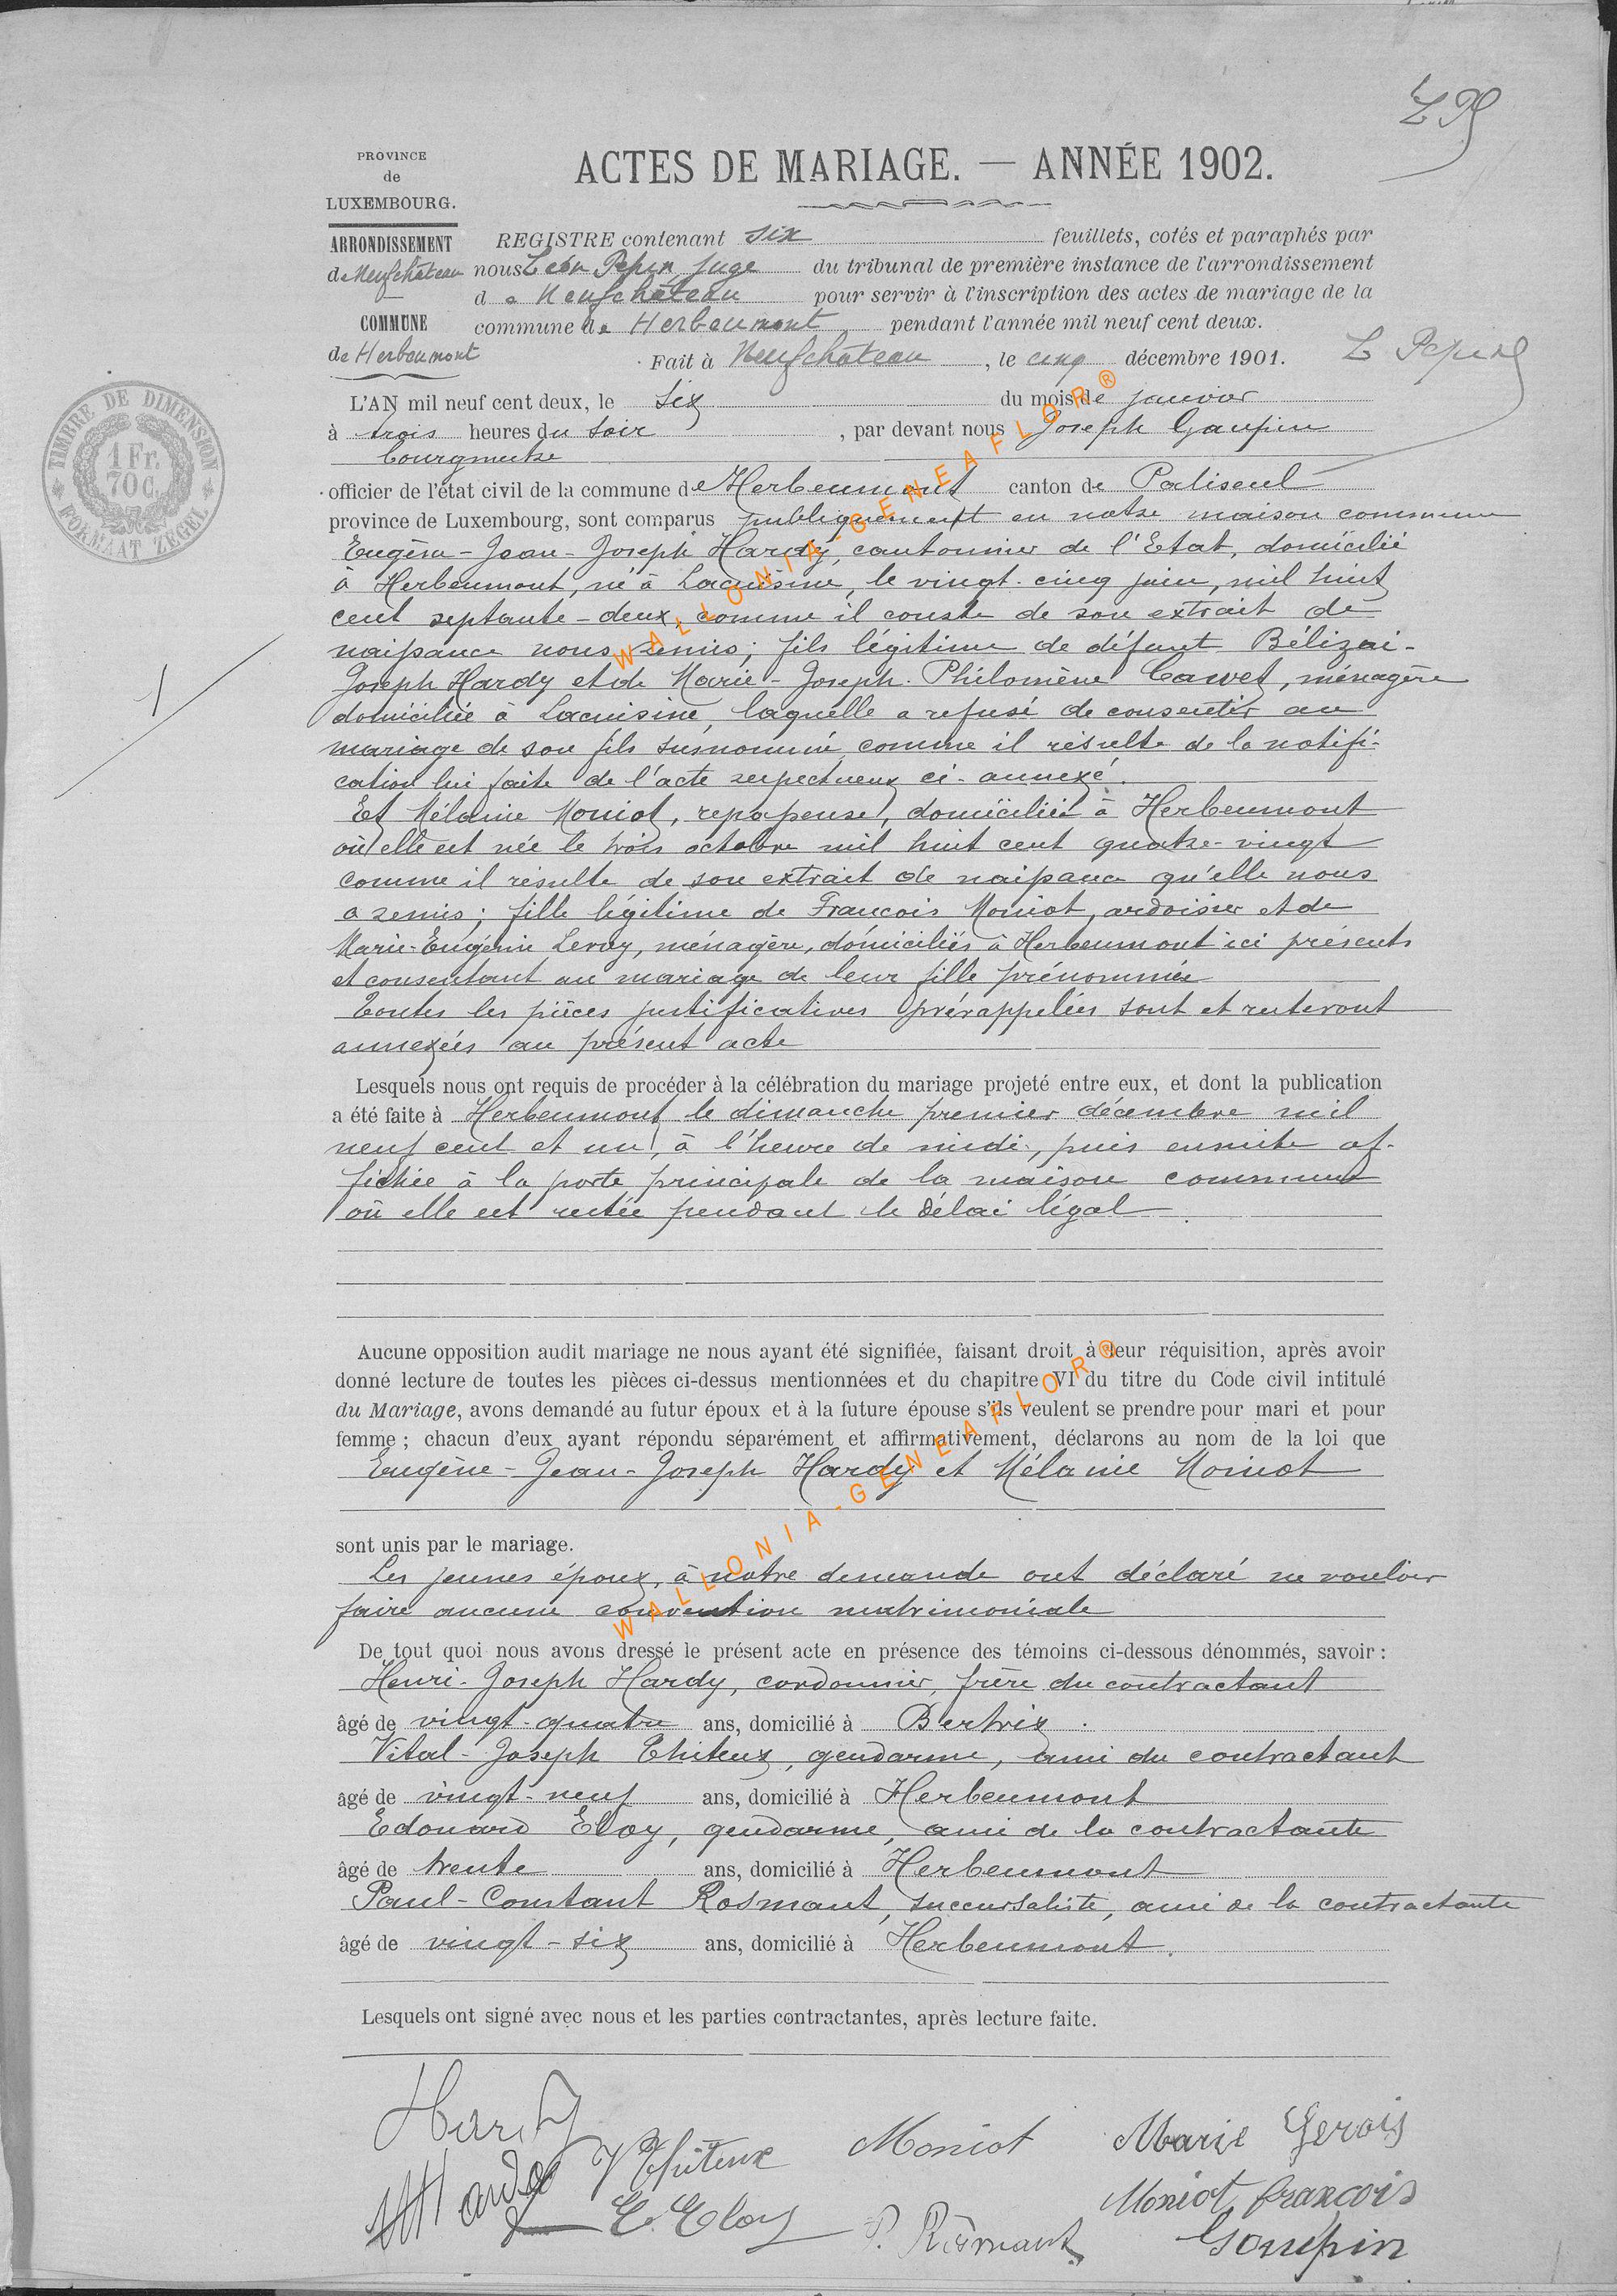 PROVINCE
de
LUXEMBOURG.
ARRONDISSEMENT
de Neufchâteau
COMMUNE
de Herbeumont
ACTES DE MARIAGE. — ANNÉE 1902.
REGISTRE contenant six feuillets, cotés et paraphés par
nous Léon Pepin, juge du tribunal de première instance de l'arrondissement
de Neufchâteau pour servir à l'inscription des actes de mariage de la
commune de Herbeumont pendant l'année mil neuf cent deux.
Fait à Neufchâteau, le cinq décembre 1901. L Pepin
TIMBRE DE DIMENSION
1 Fr.
70 C.
FORMAAT ZEGEL
L'AN mil neuf cent deux, le six du mois de janvier
à trois heures du soir, par devant nous Joseph Goupin
bourgmestre
officier de l'état civil de la commune de Herbeumont canton de Paliseul
province de Luxembourg, sont comparus publiquement en notre maison commune
Eugène-Jean-Joseph Hardy, cantonnier de l'Etat, domicilié
à Herbeumont, né à Lacuisine, le vingt-cinq juin, mil huit
cent septante-deux, comme il conste de son extrait de
naissance nous remis; fils légitime de défunt Bélizai-
Joseph Hardy et de Marie-Joseph-Philomène Cawet, ménagère
domiciliée à Lacuisine, laquelle a refusé de consentir au
mariage de son fils susnommé comme il résulte de la notifi-
cation lui faite de l'acte respectueux ci-annexé.
Et Mélanie Moniot, repasseuse, domiciliée à Herbeumont
où elle est née le trois octobre mil huit cent quatre-vingt
comme il résulte de son extrait de naissance qu'elle nous
a remis; fille légitime de François Moniot, ardoisier et de
Marie-Eugénie, ménagère, domiciliés à Herbeumont ici présents
et consentant au mariage de leur fille prénommée
Toutes les pièces justificatives prérappelées sont et resteront
annexées au présent acte
Lesquels nous ont requis de procéder à la célébration du mariage projeté entre eux, et dont la publication
a été faite à Herbeumont le dimanche premier décembre mil
neuf cent et un, à l'heure de midi, puis ensuite af-
fichée à la porte principale de la maison commune
où elle est restée pendant le délai légal.
Aucune opposition audit mariage ne nous ayant été signifiée, faisant droit à leur réquisition, après avoir
donné lecture de toutes les pièces ci-dessus mentionnées et du chapitre VI du titre du Code civil intitulé
du Mariage, avons demandé au futur époux et à la future épouse s'ils veulent se prendre pour mari et pour
femme ; chacun d'eux ayant répondu séparément et affirmativement, déclarons au nom de la loi que
Eugène-Jean-Joseph Hardy et Mélanie Moniot
sont unis par le mariage.
Les jeunes époux, à notre demande ont déclaré ne vouloir
faire aucune convention matrimoniale
De tout quoi nous avons dressé le présent acte en présence des témoins ci-dessous dénommés, savoir :
Henri-Joseph Hardy, cordonnier, frère du contractant
âgé de vingt-quatre ans, domicilié à Bertrix.
Vital-Joseph Thiteux, gendarme, ami du contractant
âgé de vingt-neuf ans, domicilié à Herbeumont
Edouard Eloy, gendarme, ami de la contractante
âgé de trente ans, domicilié à Herbeumont
Paul-Constant Rosmant, succursaliste, ami de la contractante
âgé de vingt-six ans, domicilié à Herbeumont.
Lesquels ont signé avec nous et les parties contractantes, après lecture faite.
Hardy
V Thiteux
Moniot
Marie Gerois
Hardy
E. Eloy
P. Rosmant
Moniot françois
Goupin
WALLONIA-GENEAFLOR®
WALLONIA-GENEAFLOR®